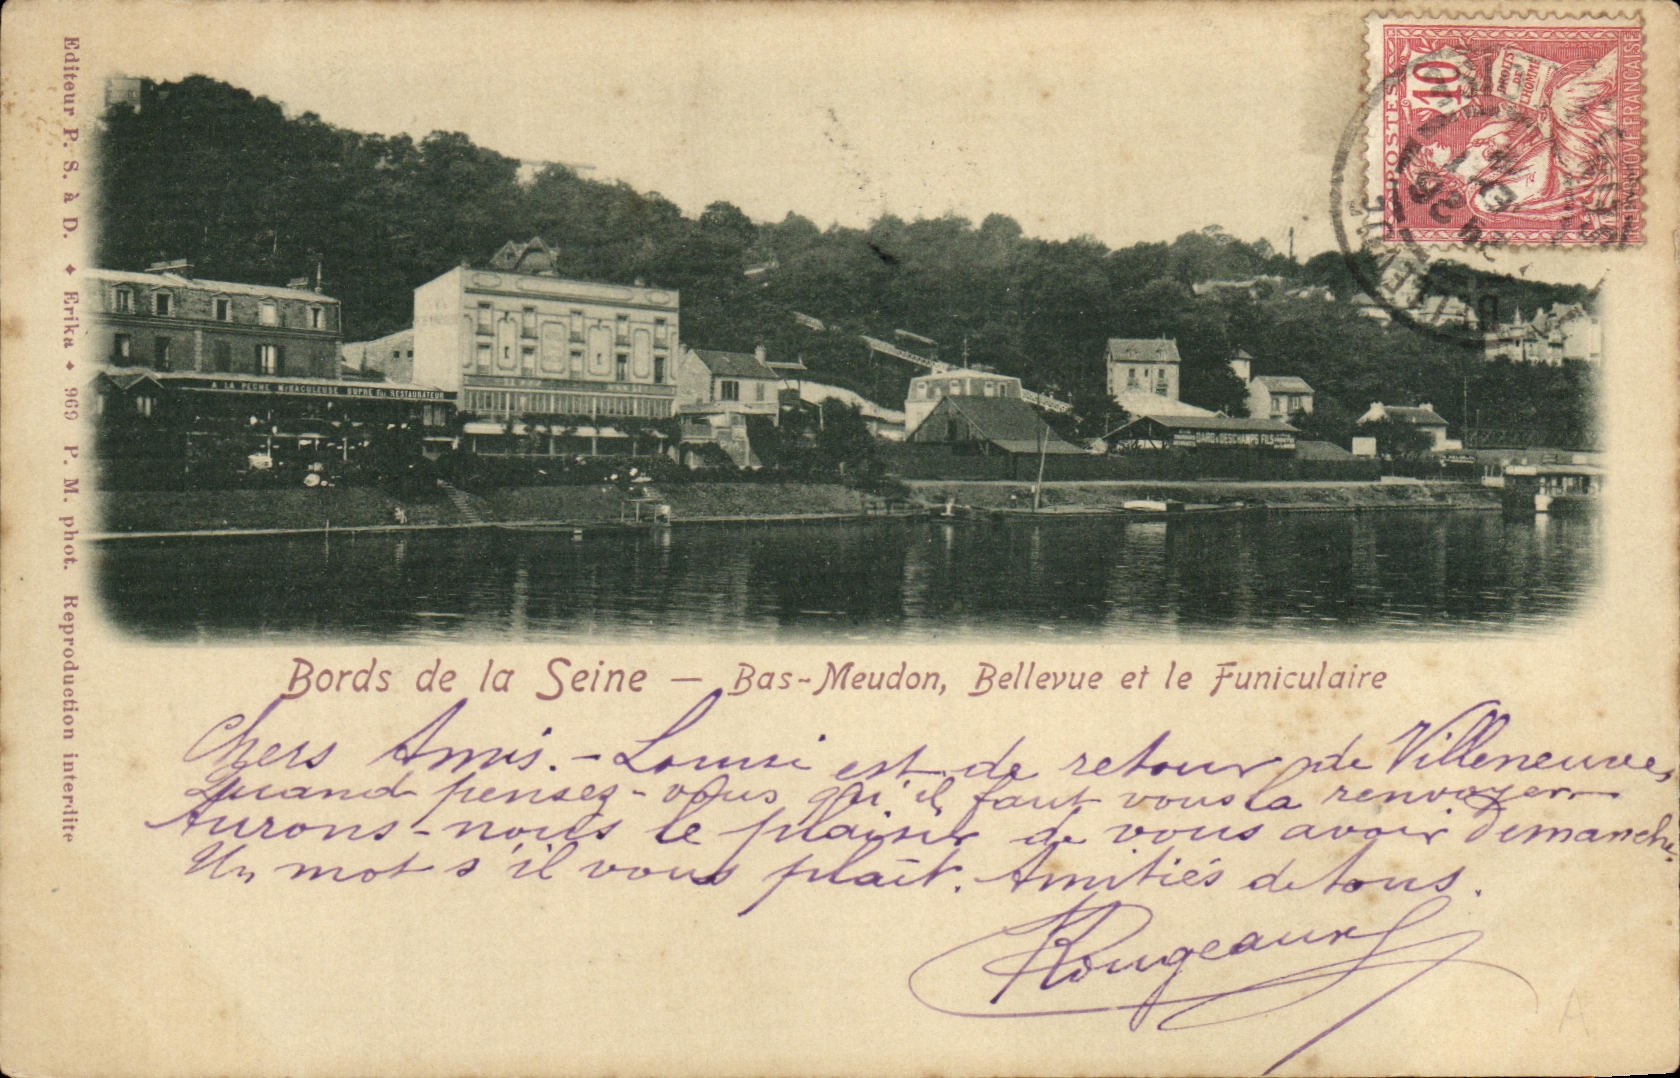 Editeur P. S. à D. ✦ Erika ✦ 969 P. M. phot. Reproduction interdite
10
DROITS DE L'HOMME
POSTES
A LA PECHE MIRACULEUSE DUPRE Fils RESTAURATEUR
DARD & DESCHAMPS FILS
Bords de la Seine — Bas-Meudon, Bellevue et le Funiculaire
Chers Amis. - Louise est de retour de Villeneuve,
Quand pensez-vous qu'il faut vous la renvoyer
Aurons-nous le plaisir de vous avoir Dimanche.
Un mot s'il vous plaît. Amitiés de tous.
Rougeaux